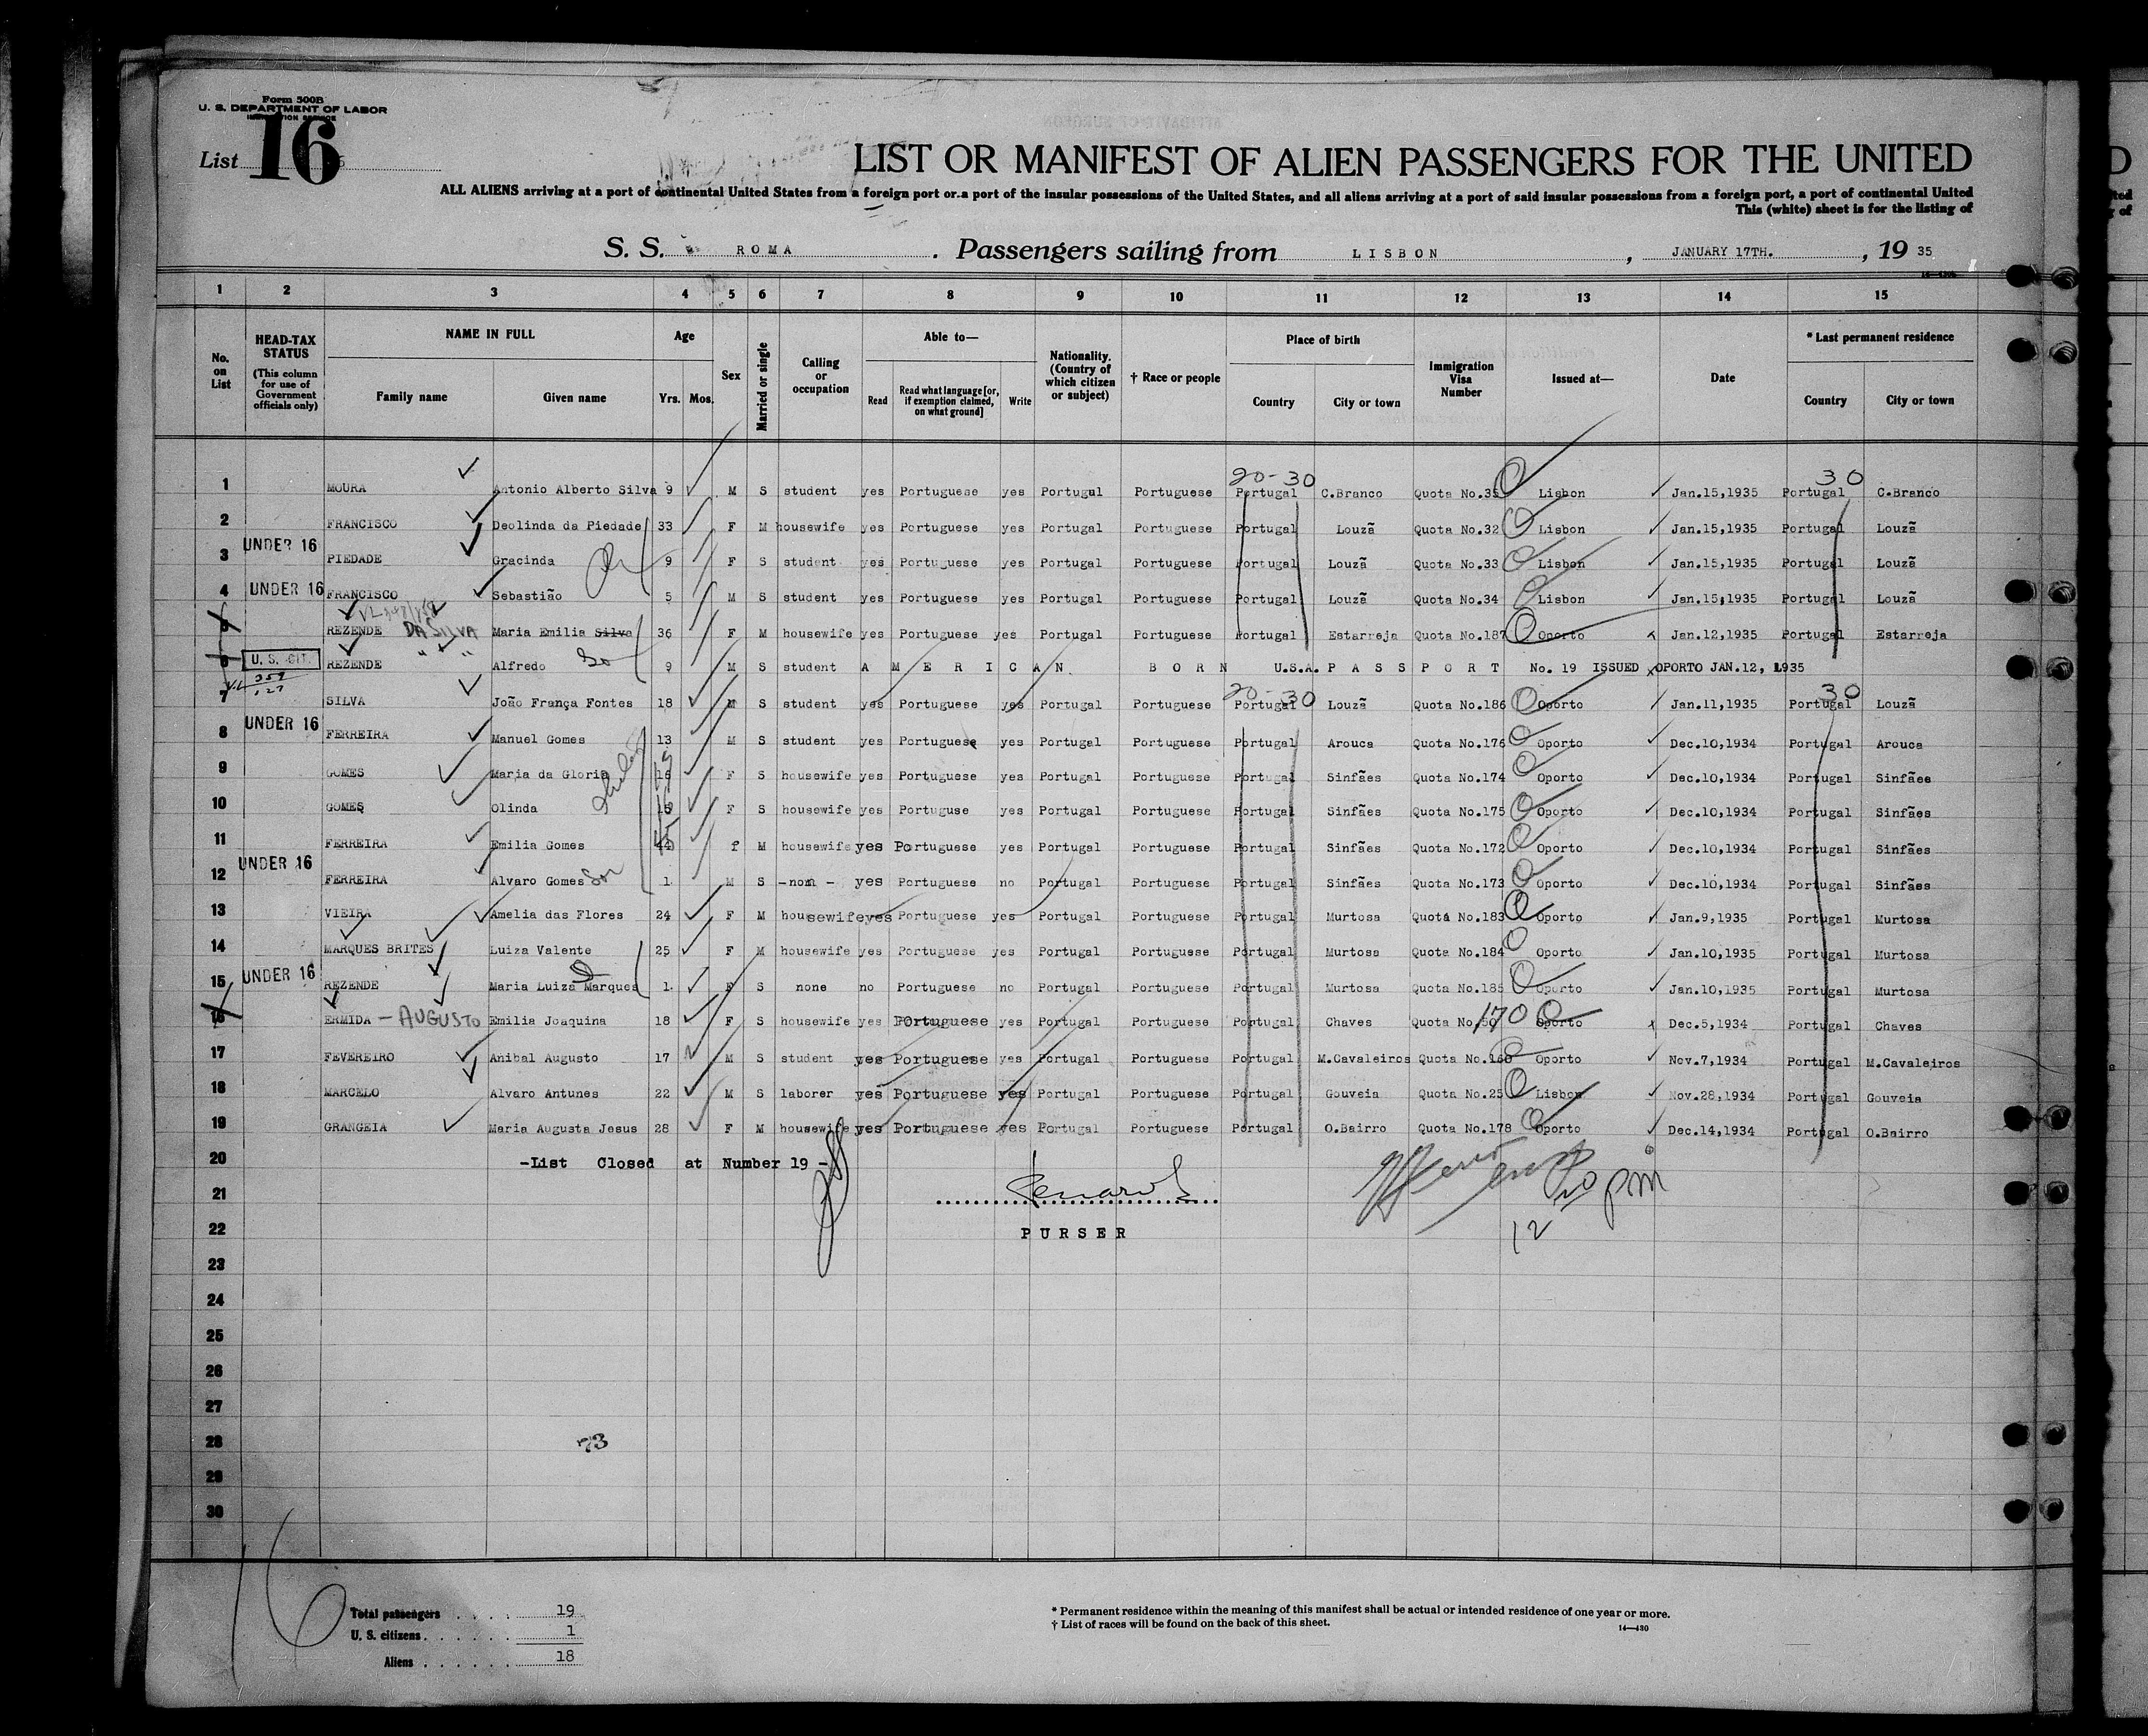 Form 500B
U. S. DEPARTMENT OF LABOR
List 16
LIST OR MANIFEST OF ALIEN PASSENGERS FOR THE UNITED
ALL ALIENS arriving at a port of continental United States from a foreign port or a port of the insular possessions of the United States, and all aliens arriving at a port of said insular possessions from a foreign port, a port of continental United
This (white) sheet is for the listing of
S. S. ROMA . Passengers sailing from LISBON , JANUARY 17TH. , 19 35
1 2 3 4 5 6 7 8 9 10 11 12 13 14 15
No. on List HEAD-TAX STATUS (This column for use of Government officials only) NAME IN FULL Family name Given name Age Yrs. Mos. Sex Married or single Calling or occupation Able to— Read Read what language [or, if exemption claimed, on what ground] Write Nationality. (Country of which citizen or subject) † Race or people Place of birth Country City or town Immigration Visa Number Issued at— Date * Last permanent residence Country City or town
20-30 30
1 MOURA Antonio Alberto Silva 9 M S student yes Portuguese yes Portugal Portuguese Portugal C.Branco Quota No.35 Lisbon Jan.15,1935 Portugal C.Branco
2 FRANCISCO Deolinda da Piedade 33 F M housewife yes Portuguese yes Portugal Portuguese Portugal Louzã Quota No.32 Lisbon Jan.15,1935 Portugal Louzã
3 UNDER 16 PIEDADE Gracinda 9 F S student yes Portuguese yes Portugal Portuguese Portugal Louzã Quota No.33 Lisbon Jan.15,1935 Portugal Louzã
4 UNDER 16 FRANCISCO Sebastião 5 M S student yes Portuguese yes Portugal Portuguese Portugal Louzã Quota No.34 Lisbon Jan.15,1935 Portugal Louzã
5 REZENDE DA SILVA Maria Emilia Silva 36 F M housewife yes Portuguese yes Portugal Portuguese Portugal Estarreja Quota No.187 Oporto Jan.12,1935 Portugal Estarreja
6 U. S. CIT. REZENDE " " Alfredo So 9 M S student AMERICAN BORN U.S.A. PASSPORT No. 19 ISSUED OPORTO JAN.12, 1935
20-30 30
7 SILVA João França Fontes 18 M S student yes Portuguese yes Portugal Portuguese Portugal Louzã Quota No.186 Oporto Jan.11,1935 Portugal Louzã
8 UNDER 16 FERREIRA Manuel Gomes 13 M S student yes Portuguese yes Portugal Portuguese Portugal Arouca Quota No.176 Oporto Dec.10,1934 Portugal Arouca
9 GOMES Maria da Gloria 16 F S housewife yes Portuguese yes Portugal Portuguese Portugal Sinfães Quota No.174 Oporto Dec.10,1934 Portugal Sinfães
10 GOMES Olinda F S housewife yes Portuguse yes Portugal Portuguese Portugal Sinfães Quota No.175 Oporto Dec.10,1934 Portugal Sinfães
11 FERREIRA Emilia Gomes 44 f M housewife yes Portuguese yes Portugal Portuguese Portugal Sinfães Quota No.172 Oporto Dec.10,1934 Portugal Sinfães
12 UNDER 16 FERREIRA Alvaro Gomes Son 1 M S -non - yes Portuguese no Portugal Portuguese Portugal Sinfães Quota No.173 Oporto Dec.10,1934 Portugal Sinfães
13 VIEIRA Amelia das Flores 24 F M housewife yes Portuguese yes Portugal Portuguese Portugal Murtosa Quota No.183 Oporto Jan.9,1935 Portugal Murtosa
14 MARQUES BRITES Luiza Valente 25 F M housewife yes Portuguese yes Portugal Portuguese Portugal Murtosa Quota No.184 Oporto Jan.10,1935 Portugal Murtosa
15 UNDER 16 REZENDE Maria Luiza Marques 1 F S none no Portuguese no Portugal Portuguese Portugal Murtosa Quota No.185 Oporto Jan.10,1935 Portugal Murtosa
16 ERMIDA - AUGUSTO Emilia Joaquina 18 F S housewife yes Portuguese yes Portugal Portuguese Portugal Chaves Quota No. 170 Oporto Dec.5,1934 Portugal Chaves
17 FEVEREIRO Anibal Augusto 17 M S student yes Portuguese yes Portugal Portuguese Portugal M.Cavaleiros Quota No.160 Oporto Nov.7,1934 Portugal M.Cavaleiros
18 MARCELO Alvaro Antunes 22 M S laborer yes Portuguese yes Portugal Portuguese Portugal Gouveia Quota No.25 Lisbon Nov.28,1934 Portugal Gouveia
19 GRANGEIA Maria Augusta Jesus 28 F M housewife yes Portuguese yes Portugal Portuguese Portugal O.Bairro Quota No.178 Oporto Dec.14,1934 Portugal O.Bairro
20 -List Closed at Number 19 -
21
22 PURSER
12 20 pm
23
24
25
26
27
28 73
29
30
16
Total passengers . . . . 19
U. S. citizens . . . . . . 1
Aliens . . . . . . 18
* Permanent residence within the meaning of this manifest shall be actual or intended residence of one year or more.
† List of races will be found on the back of this sheet.
14—430